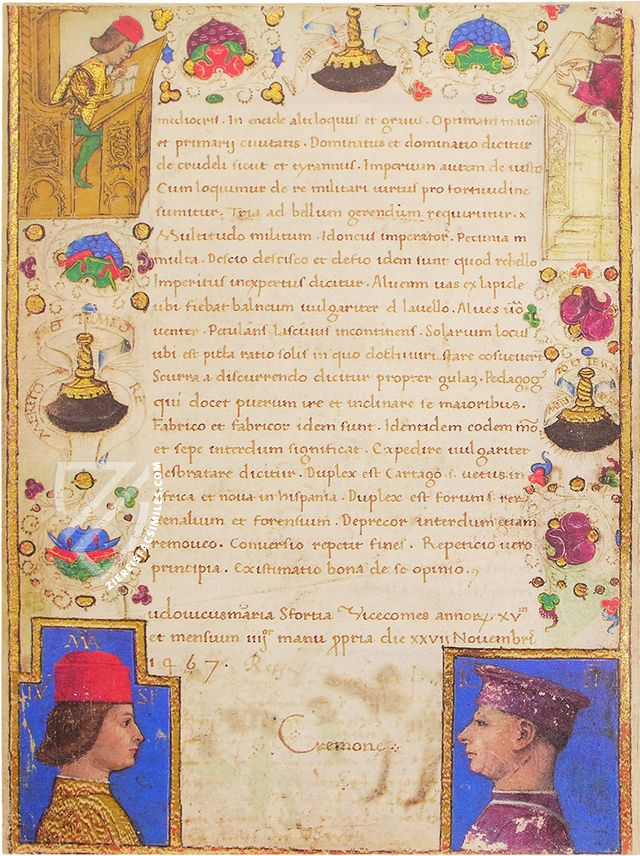 MERITO ET TEMPORE
mediocris. In enode alteloquus et gravis. Optimates maiores
et primarij civitatis. Dominatus et dominatio dicitur
de crudeli sicut et tyrannus. Imperium autem de iusto
Cum loquimur de re militari virtus pro fortitudine
sumitur. Tria ad bellum gerendium requiruntur. x
Multitudo militum. Idoneus imperator. Pecunia m
multa. Descio descisco et defio idem sunt quod rebello
Imperitus inexpertus dicitur. Alveum vas ex lapide
ubi fiebat balneum vulgariter el lavello. Alves
venter. Petulans lascivus incontinens. Solarium locus
ubi est picta ratio solis in quo docti viri stare cosueverit
Scurra a discurrendo dicitur propter gulam. Pedagog
qui docet puerum ire et inclinare se maioribus.
Fabrico et fabricor idem sunt. Identidem eodem mō
et sepe interdum significat. Expedire vulgariter
desbratare dicitur. Duplex est Cartago s. vetus in
africa et nova in hispania. Duplex est forum s. rer
venalium et forensium. Deprecor interdum etiam
removeo. Conversio repetit fines. Repeticio vero
principia. Existimatio bona de se opinio
ET TEMPO
MERITO RE
udovicus maria Sfortia Vicecomes annorum xv
et mensium iiij manu propria die xxvii Novembris
1467.
Cremone.
MA
LV SF
ZIEREIS FACSIMILES.COM